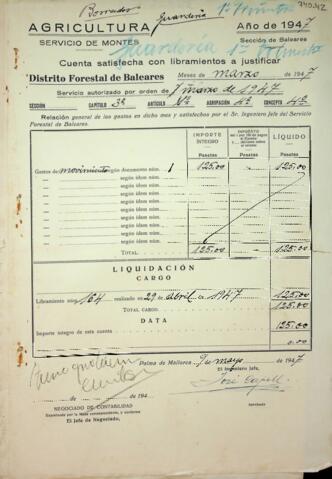 Borrador Guardería 1er Trimestre
AGRICULTURA
Año de 1947
SERVICIO DE MONTES
Sección de Baleares
Guardería 1er Trimestre
Cuenta satisfecha con libramientos a justificar
Distrito Forestal de Baleares
Meses de marzo de 1947
Servicio autorizado por orden de 7 marzo de 1947
SECCIÓN CAPÍTULO 3º ARTÍCULO AGRUPACIÓN 4ª CONCEPTO 4º
Relación general de los gastos en dicho mes y satisfechos por el Sr. Ingeniero Jefe del Servicio
Forestal de Baleares.
IMPORTE ÍNTEGRO
LÍQUIDO
Pesetas Pesetas Pesetas
Gastos de movimiento según documento núm. 1 125.00 125.00
según idem núm.
según idem núm.
según idem núm.
según idem núm.
según idem núm.
según idem núm.
según idem núm.
TOTAL 125.00 125.00
LIQUIDACIÓN
CARGO
Libramiento núm. 164 realizado en 29 de abril de 1947 125.00
TOTAL CARGO. 125.00
DATA
Importe íntegro de esta cuenta 125.00
0.00
Palma de Mallorca 9 de mayo 1947
El Ingeniero Jefe,
José Capell
de de 194
NEGOCIADO DE CONTABILIDAD
Examinada por la Mesa correspondiente, y conforme
El Jefe de Negociado,
Aprobada